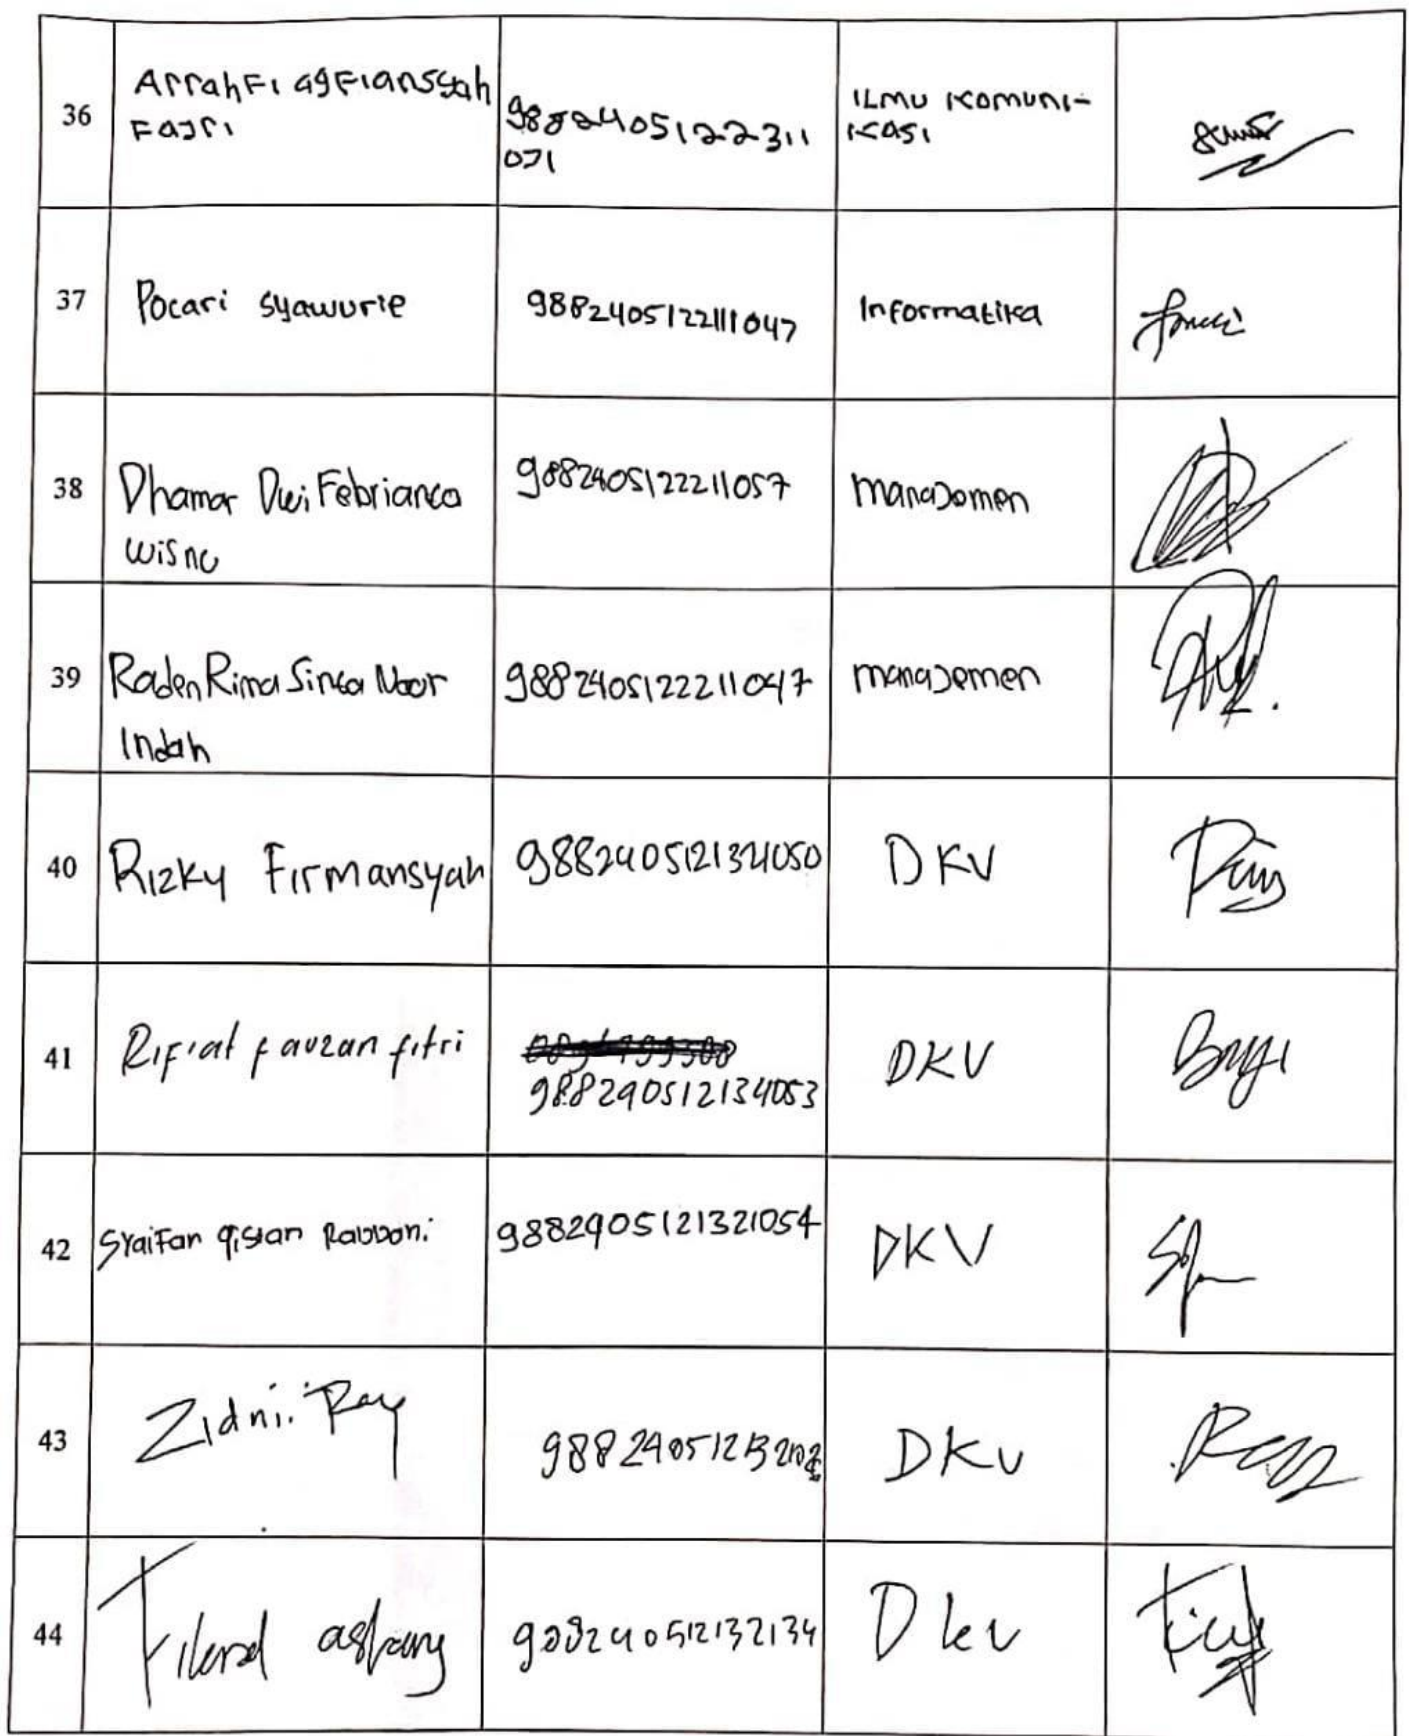 36
Arrahfi agfiansyah
Fajri
9882405122311
071
ILMU KOMUNI-
KASI
37
Pocari syawurie
988240512211​1047
Informatika
38
Dhamar Dwi Febrianto
Wisnu
988240512221​1057
manajemen
39
Raden Rima Sinta Noor
Indah
988240512221​1047
manajemen
40
Rizky Firmansyah
988240512132​1050
DKV
41
Rifiat fauzan fitri
988240512134053
DKV
42
Syaifan qistan Rabbani
988240512132​1054
DKV
43
Zidnii Ray
DKV
44
988240512132134
Dkv